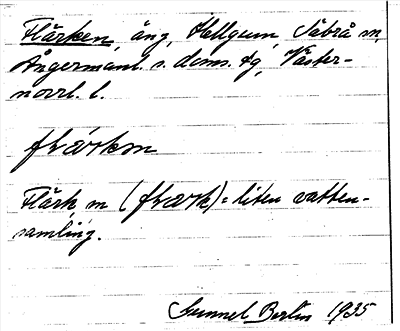 Flärken, äng, Hellgum, Säbrå m,
Ångermanl. s. doms. dg, Väster-
norrl. l.
flærkən
Flärk m (flærk) = liten vatten-
samling.
Gunnel Berlin 1935